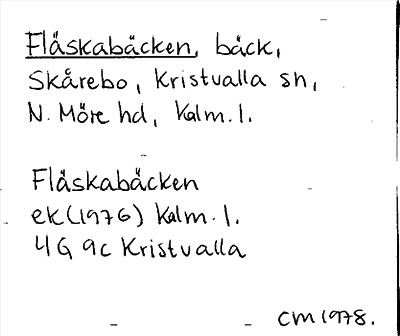 Fläskabäcken, bäck,
Skårebo, Kristvalla sn,
N. Möre hd, Kalm. l.
Fläskabäcken
ek (1976) Kalm. l.
4G 9c Kristvalla
CM 1978.